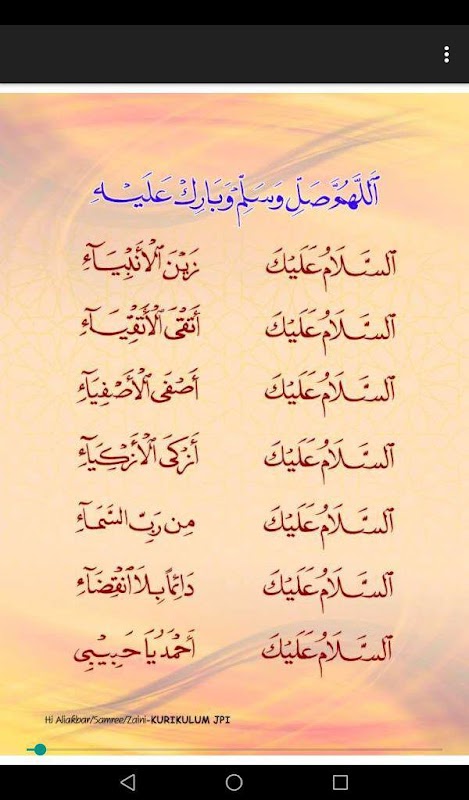 اَللّٰهُمَّ صَلِّ وَسَلِّمْ وَبَارِكْ عَلَيْهِ
اَلسَّلَامُ عَلَيْكَ زَيْنَ الْأَنْبِيَآءِ
اَلسَّلَامُ عَلَيْكَ أَتْقَى الْأَتْقِيَآءِ
اَلسَّلَامُ عَلَيْكَ أَصْفَى الْأَصْفِيَآءِ
اَلسَّلَامُ عَلَيْكَ أَزْكَى الْأَزْكِيَآءِ
اَلسَّلَامُ عَلَيْكَ مِن رَبِّ السَّمَآءِ
اَلسَّلَامُ عَلَيْكَ دَائِمًا بِلَا انْقِضَآءِ
اَلسَّلَامُ عَلَيْكَ أَحْمَدُ يَا حَبِيْبِي
Hj Aliakbar/Samree/Zaini-KURIKULUM JPI